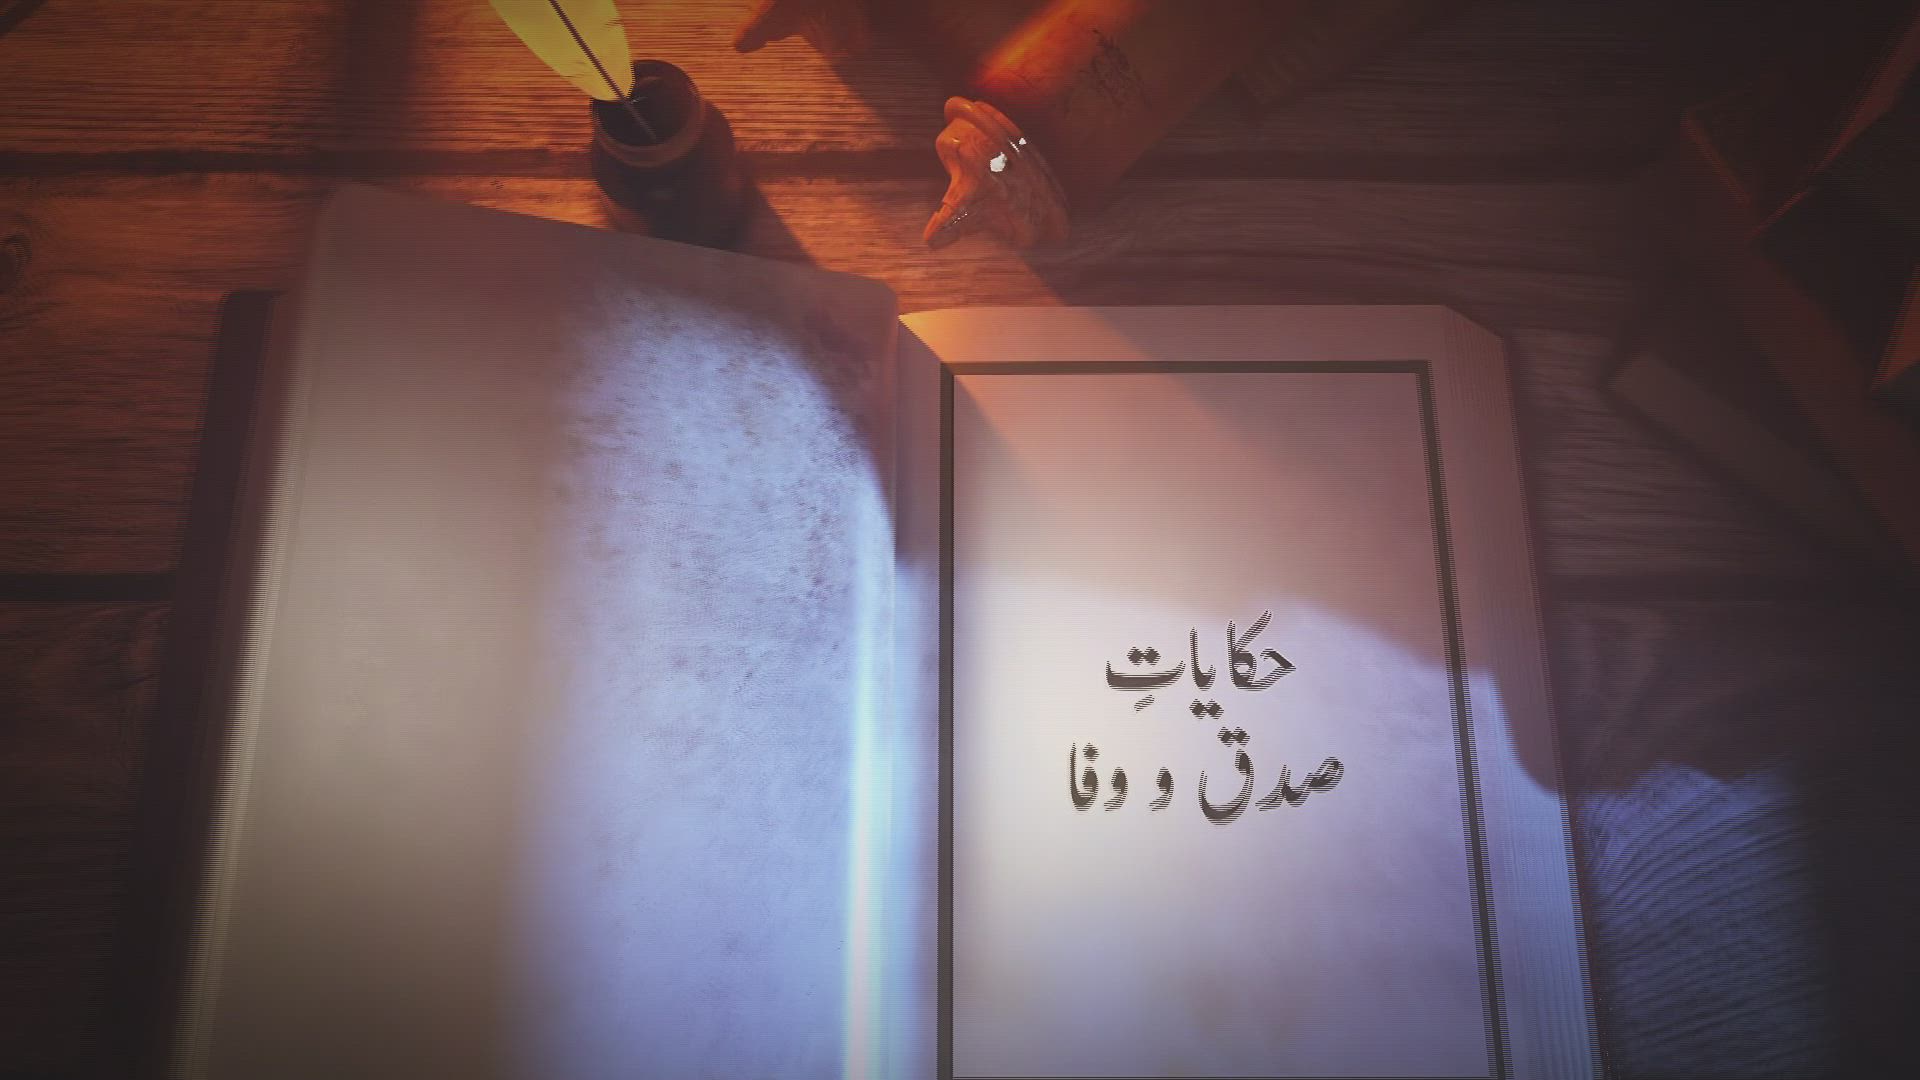 حکایاتِ
صدق و وفا